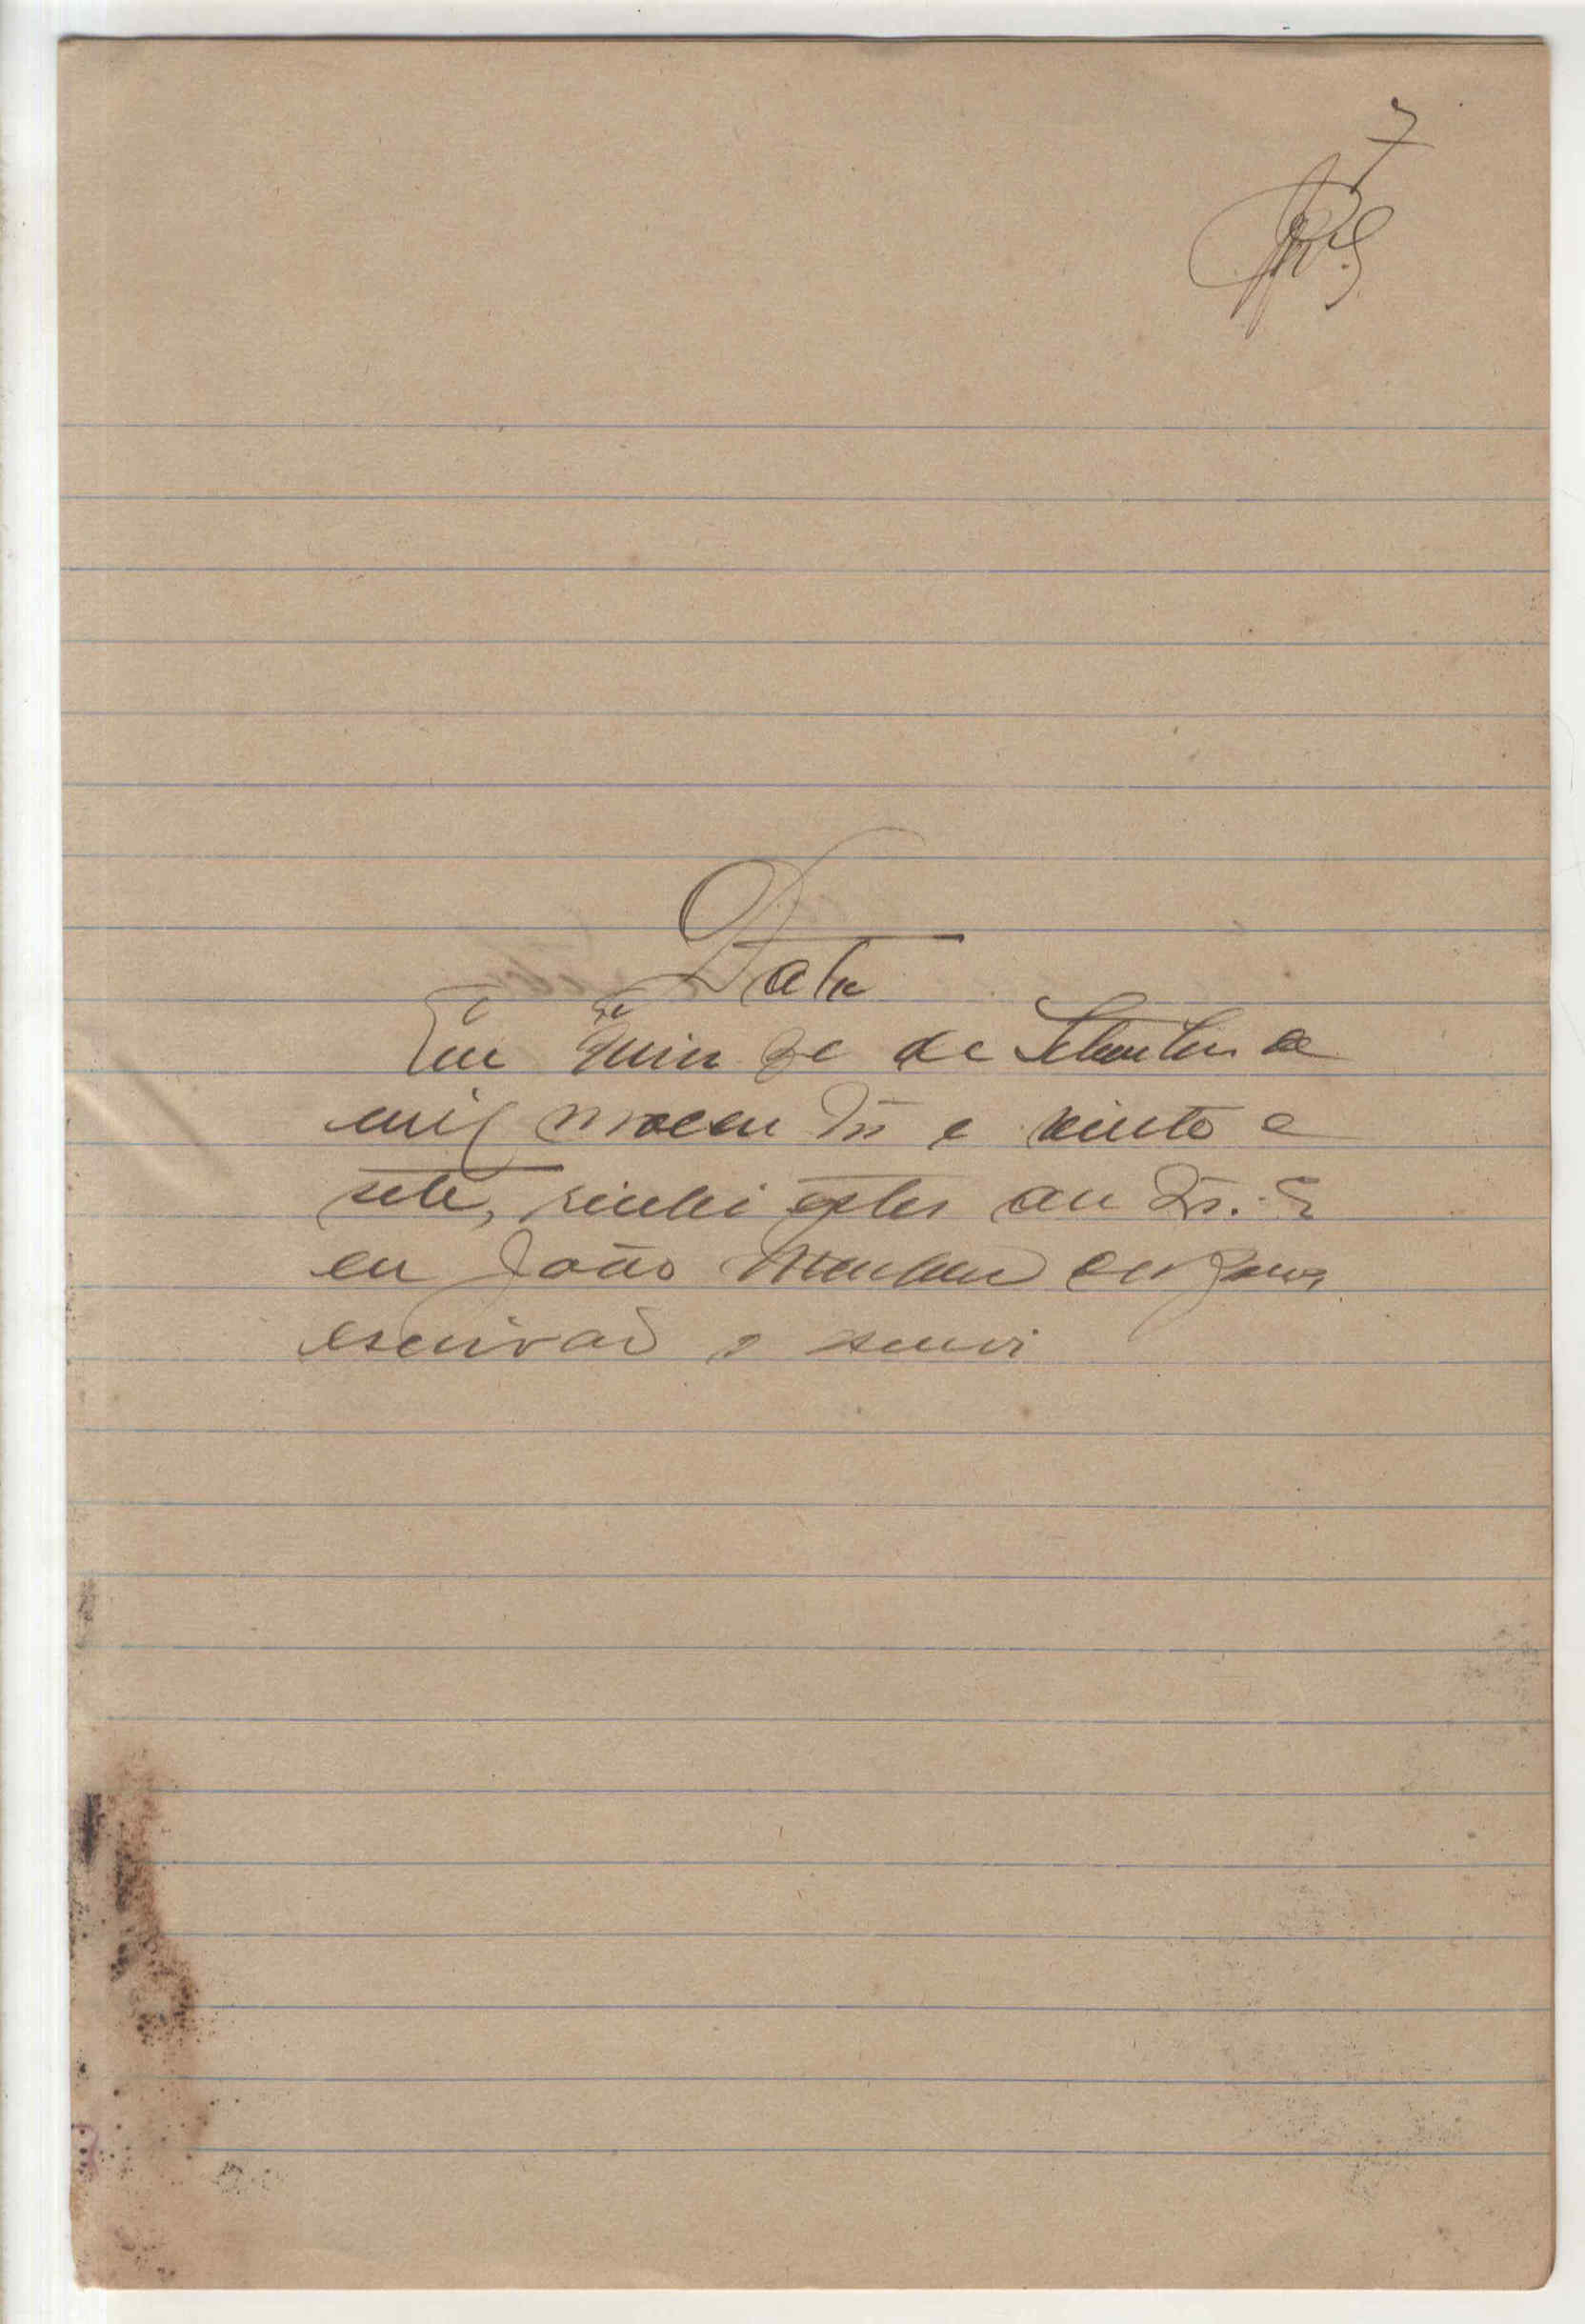 7
Data
Em quinze de Setembro de
mil novecentos e vinte e
sete, recebi estes autos. E
eu João
escrivão o escrevi